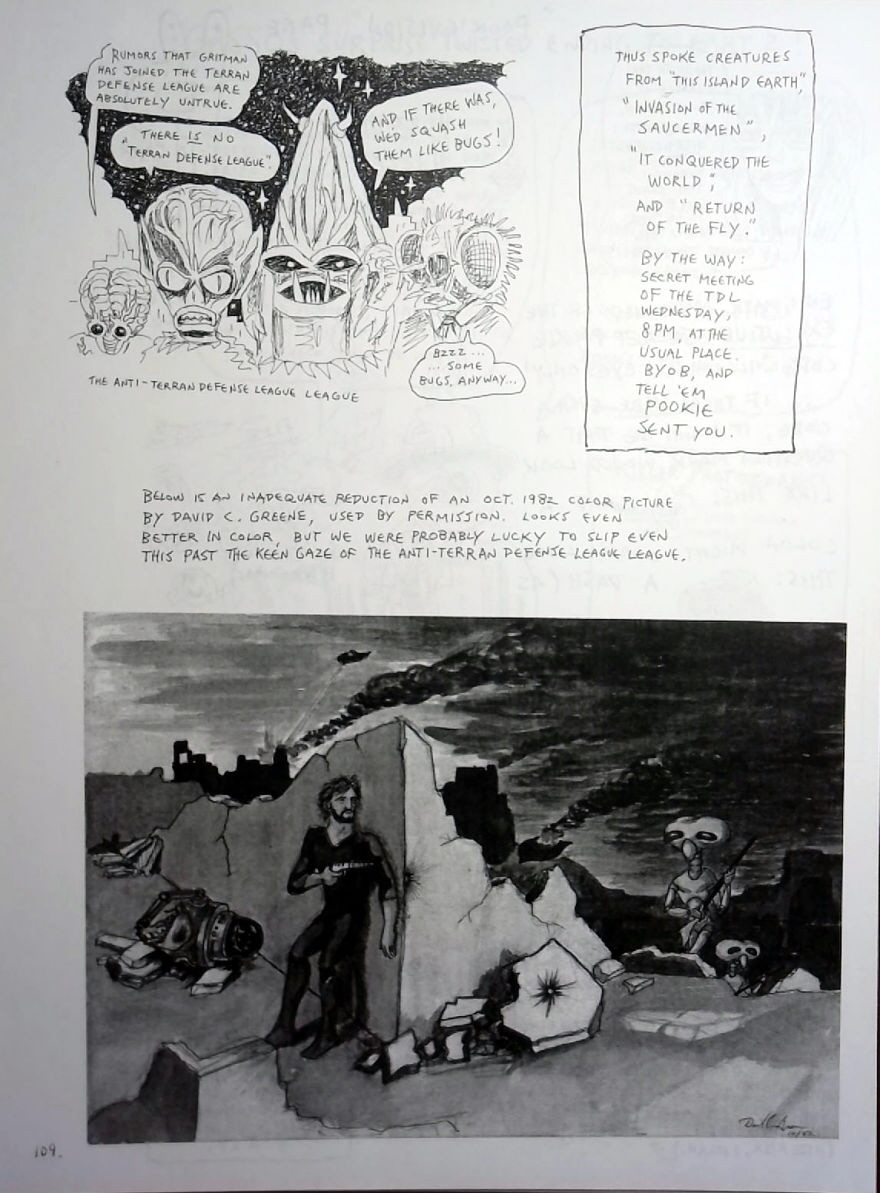 RUMORS THAT GRITMAN
HAS JOINED THE TERRAN
DEFENSE LEAGUE ARE
ABSOLUTELY UNTRUE.
THERE IS NO
"TERRAN DEFENSE LEAGUE".
AND IF THERE WAS,
WE'D SQUASH
THEM LIKE BUGS!
BZZZ...
...SOME
BUGS, ANYWAY...
THE ANTI-TERRAN DEFENSE LEAGUE LEAGUE
THUS SPOKE CREATURES
FROM "THIS ISLAND EARTH",
"INVASION OF THE
SAUCERMEN",
"IT CONQUERED THE
WORLD",
AND "RETURN
OF THE FLY."
BY THE WAY:
SECRET MEETING
OF THE TDL
WEDNESDAY,
8 PM, AT THE
USUAL PLACE.
BYOB, AND
TELL 'EM
POOKIE
SENT YOU.
BELOW IS AN INADEQUATE REDUCTION OF AN OCT. 1982 COLOR PICTURE
BY DAVID C. GREENE, USED BY PERMISSION. LOOKS EVEN
BETTER IN COLOR, BUT WE WERE PROBABLY LUCKY TO SLIP EVEN
THIS PAST THE KEEN GAZE OF THE ANTI-TERRAN DEFENSE LEAGUE LEAGUE.
109.